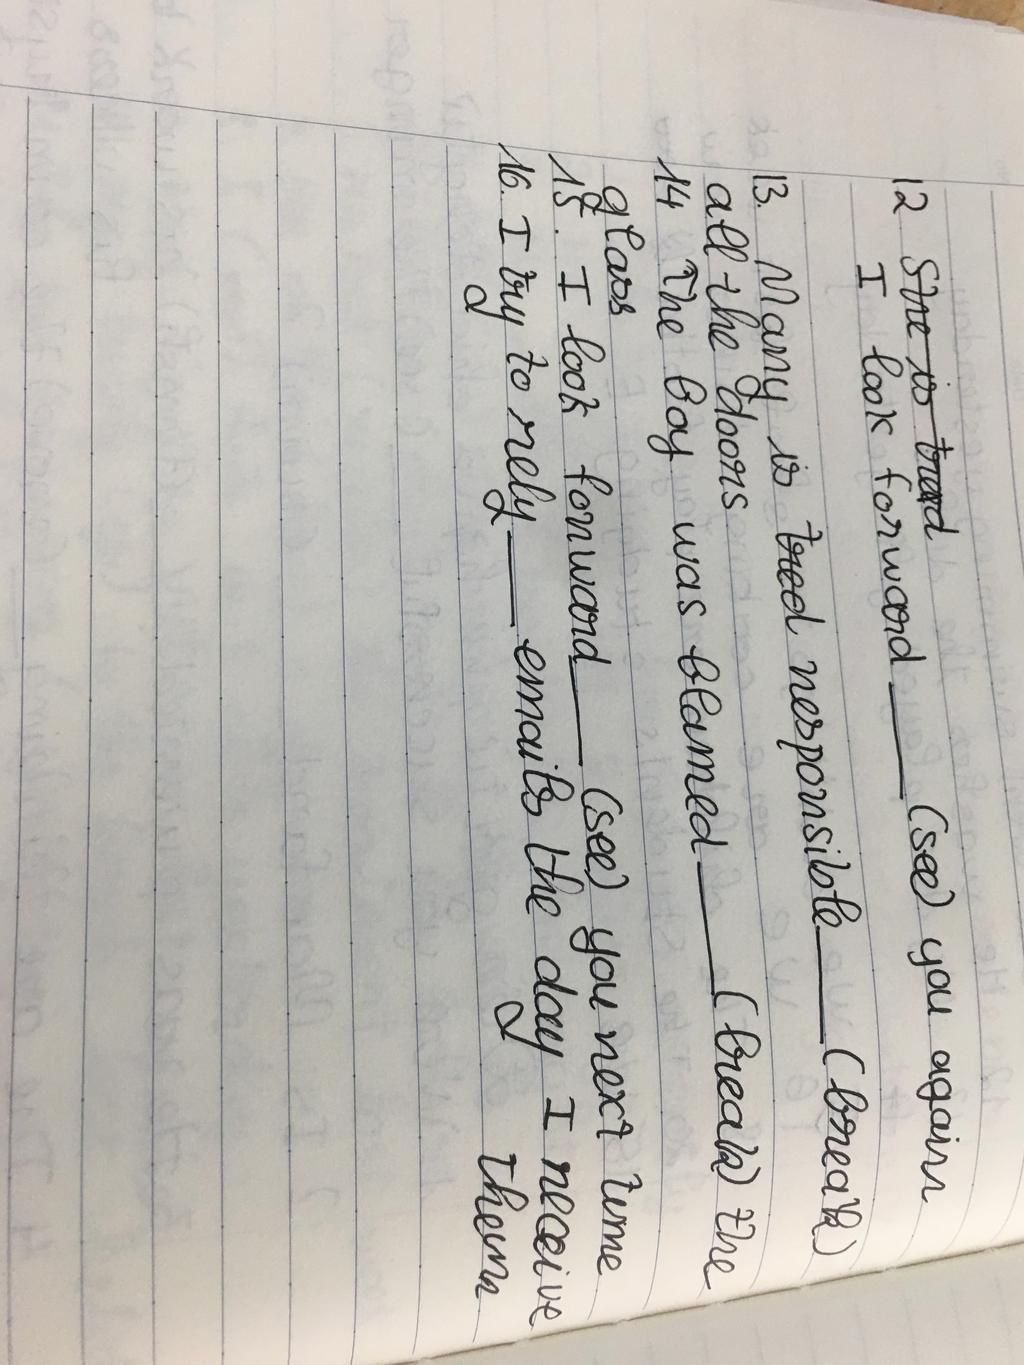 12 She is tired
I look forward ____ (see) you again
13. Many is tred responsible ____ (break)
all the doors
14 The boy was blamed ____ (break) the
glass
15. I look forward ____ (see) you next time
16. I try to rely ____ emails the day I receive
them